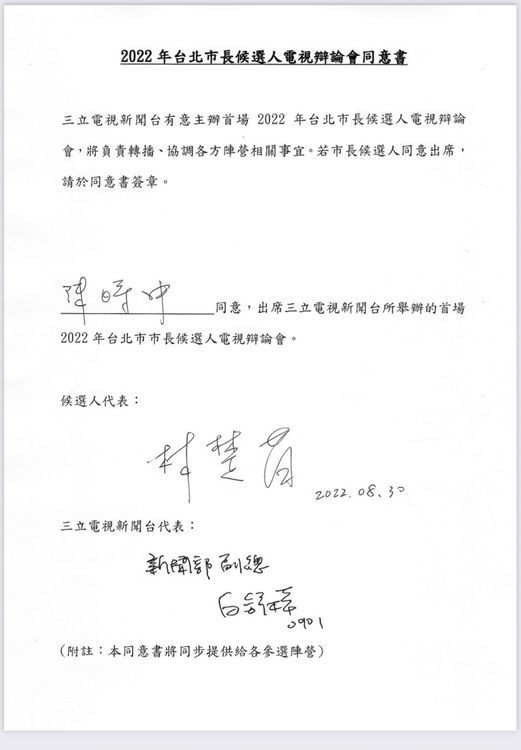 2022 年台北市長候選人電視辯論會同意書
三立電視新聞台有意主辦首場 2022 年台北市長候選人電視辯論
會，將負責轉播、協調各方陣營相關事宜。若市長候選人同意出席，
請於同意書簽章。
陳時中同意，出席三立電視新聞台所舉辦的首場
2022 年台北市市長候選人電視辯論會。
候選人代表：
林楚茵
2022.08.30
三立電視新聞台代表：
新聞部副總
白舒
0901
(附註：本同意書將同步提供給各參選陣營)